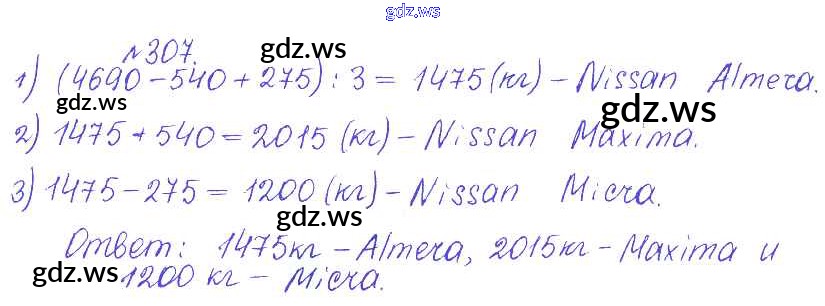 gdz.ws
№307. gdz.ws
1) (4690-540+275):3=1475(кг)-Nissan Almera.
gdz.ws gdz.ws
2) 1475+540=2015(кг)-Nissan Maxima.
3) 1475-275=1200(кг)-Nissan Micra.
gdz.ws
Ответ: 1475кг-Almera, 2015кг-Maxima и
gdz.ws 1200 кг - Micra.